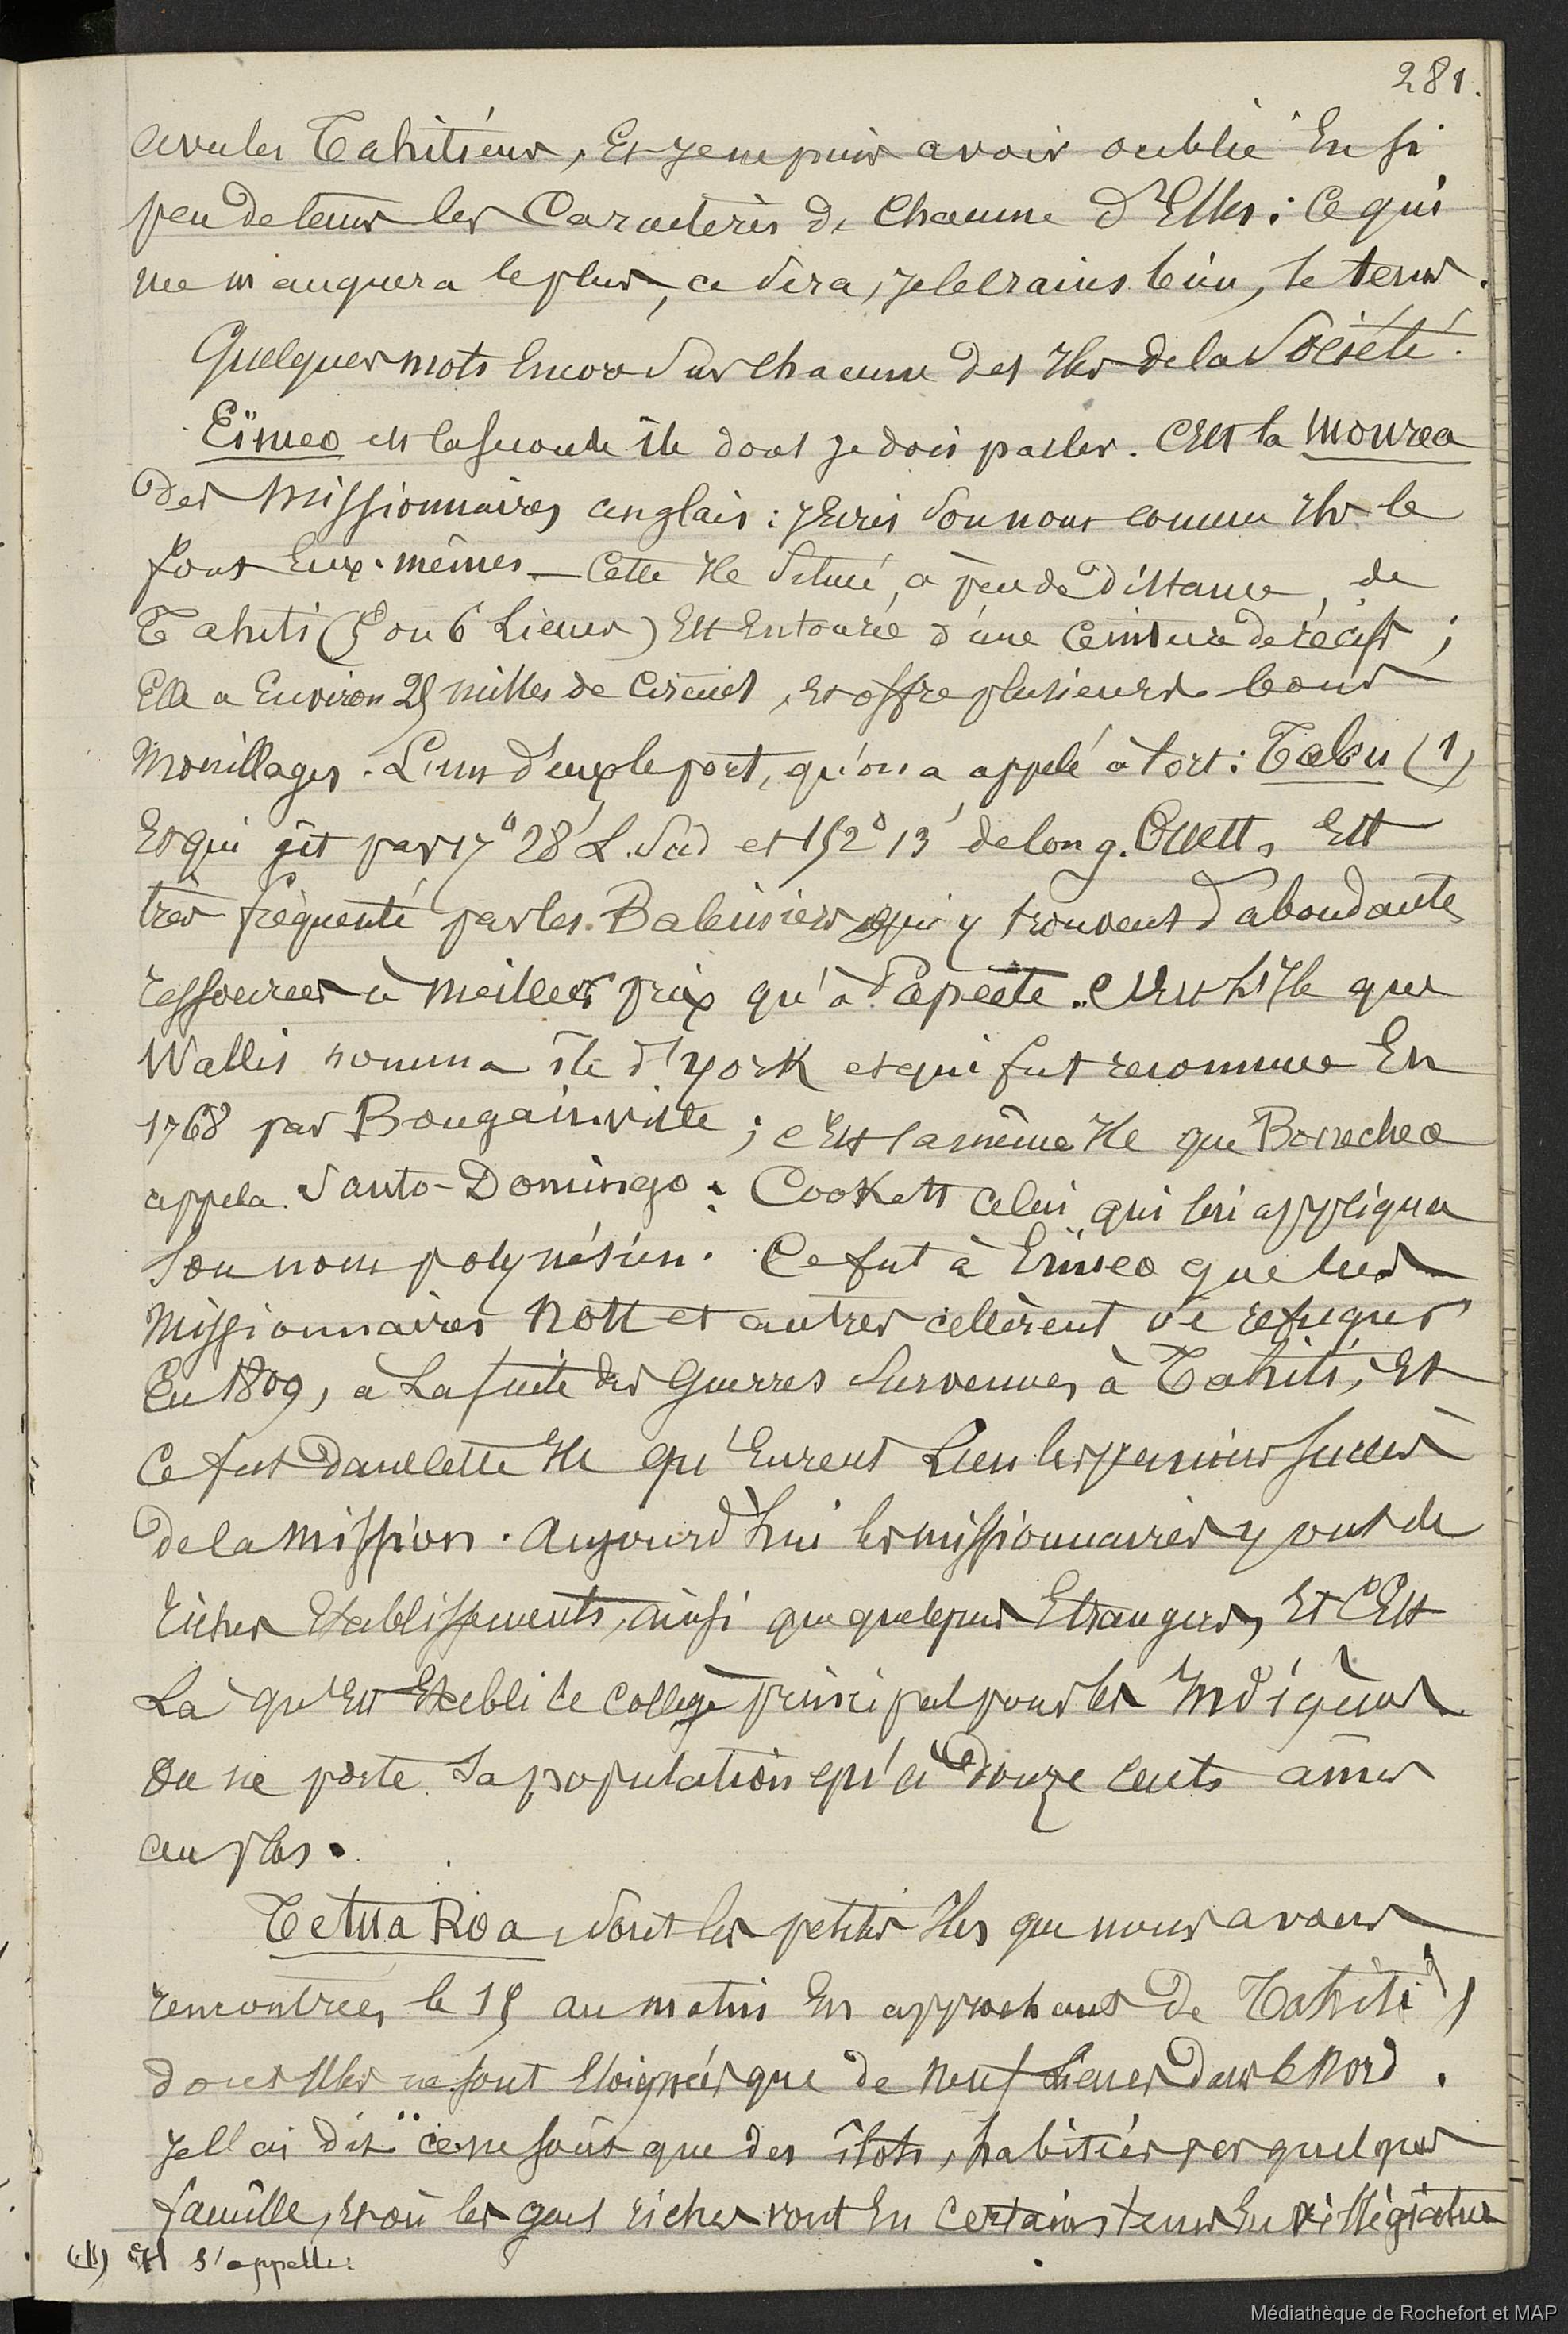 281.
avec les Tahitiens, Et je ne puis avoir oublié En si
peu de tems les Caractères de Chacune d'Elles : Ce qui
me manquera le plus, ce sera, je le crains bien, le tems.
Quelques mots Encore sur Chacune des Iles de la Société.
Eïmeo est la seconde île dont je dois parler. C'Est la Mourea
des Missionnaires anglais : j'Ecris son nom comme Ils le
font Eux-mêmes — Cette Ile située, à peu de distance, de
Tahiti (5 ou 6 Lieues) Est Entourée d'une Ceinture de récifs ;
Elle a Environ 25 milles de Circuit, Et offre plusieurs bons
Mouillages. L'un d'eux le port, qu'on a appelé à tort : Talu (1)
Et qui gît par 17° 28' L. Sud et 152° 13' de long. Ouest, Est
très fréquenté par les Baleiniers qui y trouvent d'abondantes
ressources à meilleur prix qu'à Papeete. C'Est l'Ile que
Wallis nomma île d'York et qui fut reconnue En
1768 par Bougainville ; c'Est la même Ile que Boenechea
appela Santo-Domingo ; Cook Est Celui qui lui appliqua
son nom polynésien. Ce fut à Eïmeo que les
Missionnaires Nott et autres allèrent se réfugier
En 1809, à La suite des Guerres survenues à Tahiti, Et
Ce fut dans cette Ile qu'Eurent Lieu les premiers succès
de la Mission. Aujourd'hui les missionnaires y ont de
riches Etablissements, ainsi que quelques Etrangers, Et C'Est
Là qu'Est Etabli le Collège principal pour les Indigènes.
On ne porte sa population qu'à douze cents âmes
au plus.
Tetua Roa, sont les petites Iles que nous avons
rencontrées le 15 au matin En approchant de Tahiti,
dont Elles ne sont Eloignées que de neuf Lieues dans le Nord.
Je l'ai dit : ce ne sont que des îlots, habités par quelques
famille, Et où les gens riches vont En Certains tems En villégiature
(1) Il s'appelle :
Médiathèque de Rochefort et MAP